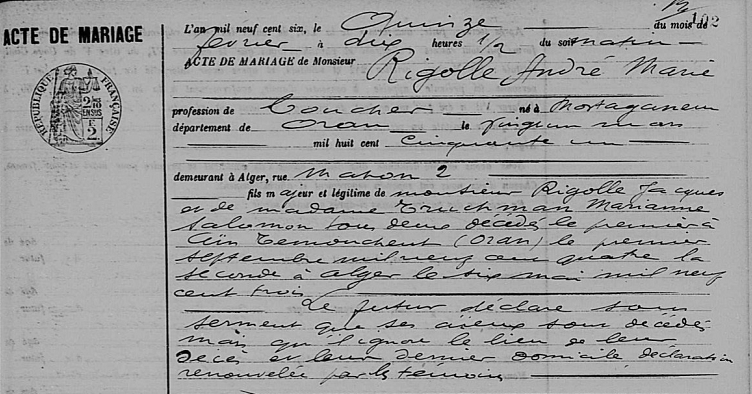 102
ACTE DE MARIAGE
RÉPUBLIQUE FRANÇAISE
L'an mil neuf cent six, le Quinze du mois de
février à dix heures 1/2 du soir matin
ACTE DE MARIAGE de Monsieur
Rigolle André Marie
profession de Coucher né à Mostaganem
département de Oran le vingt un mars
mil huit cent cinquante un
demeurant à Alger, rue Mahon 2
fils majeur et légitime de monsieur Rigolle Jacques
et de madame Truchman Marianne
Salomon tous deux décédés le premier à
Aïn Temouchent (Oran) le premier
septembre mil neuf cent quatre la
seconde à Alger le six mai mil neuf
cent trois
Le futur déclare sous
serment que ses aïeux sont décédés
mais qu'il ignore le lieu de leur
décès et leur dernier domicile déclaration
renouvelée par les témoins